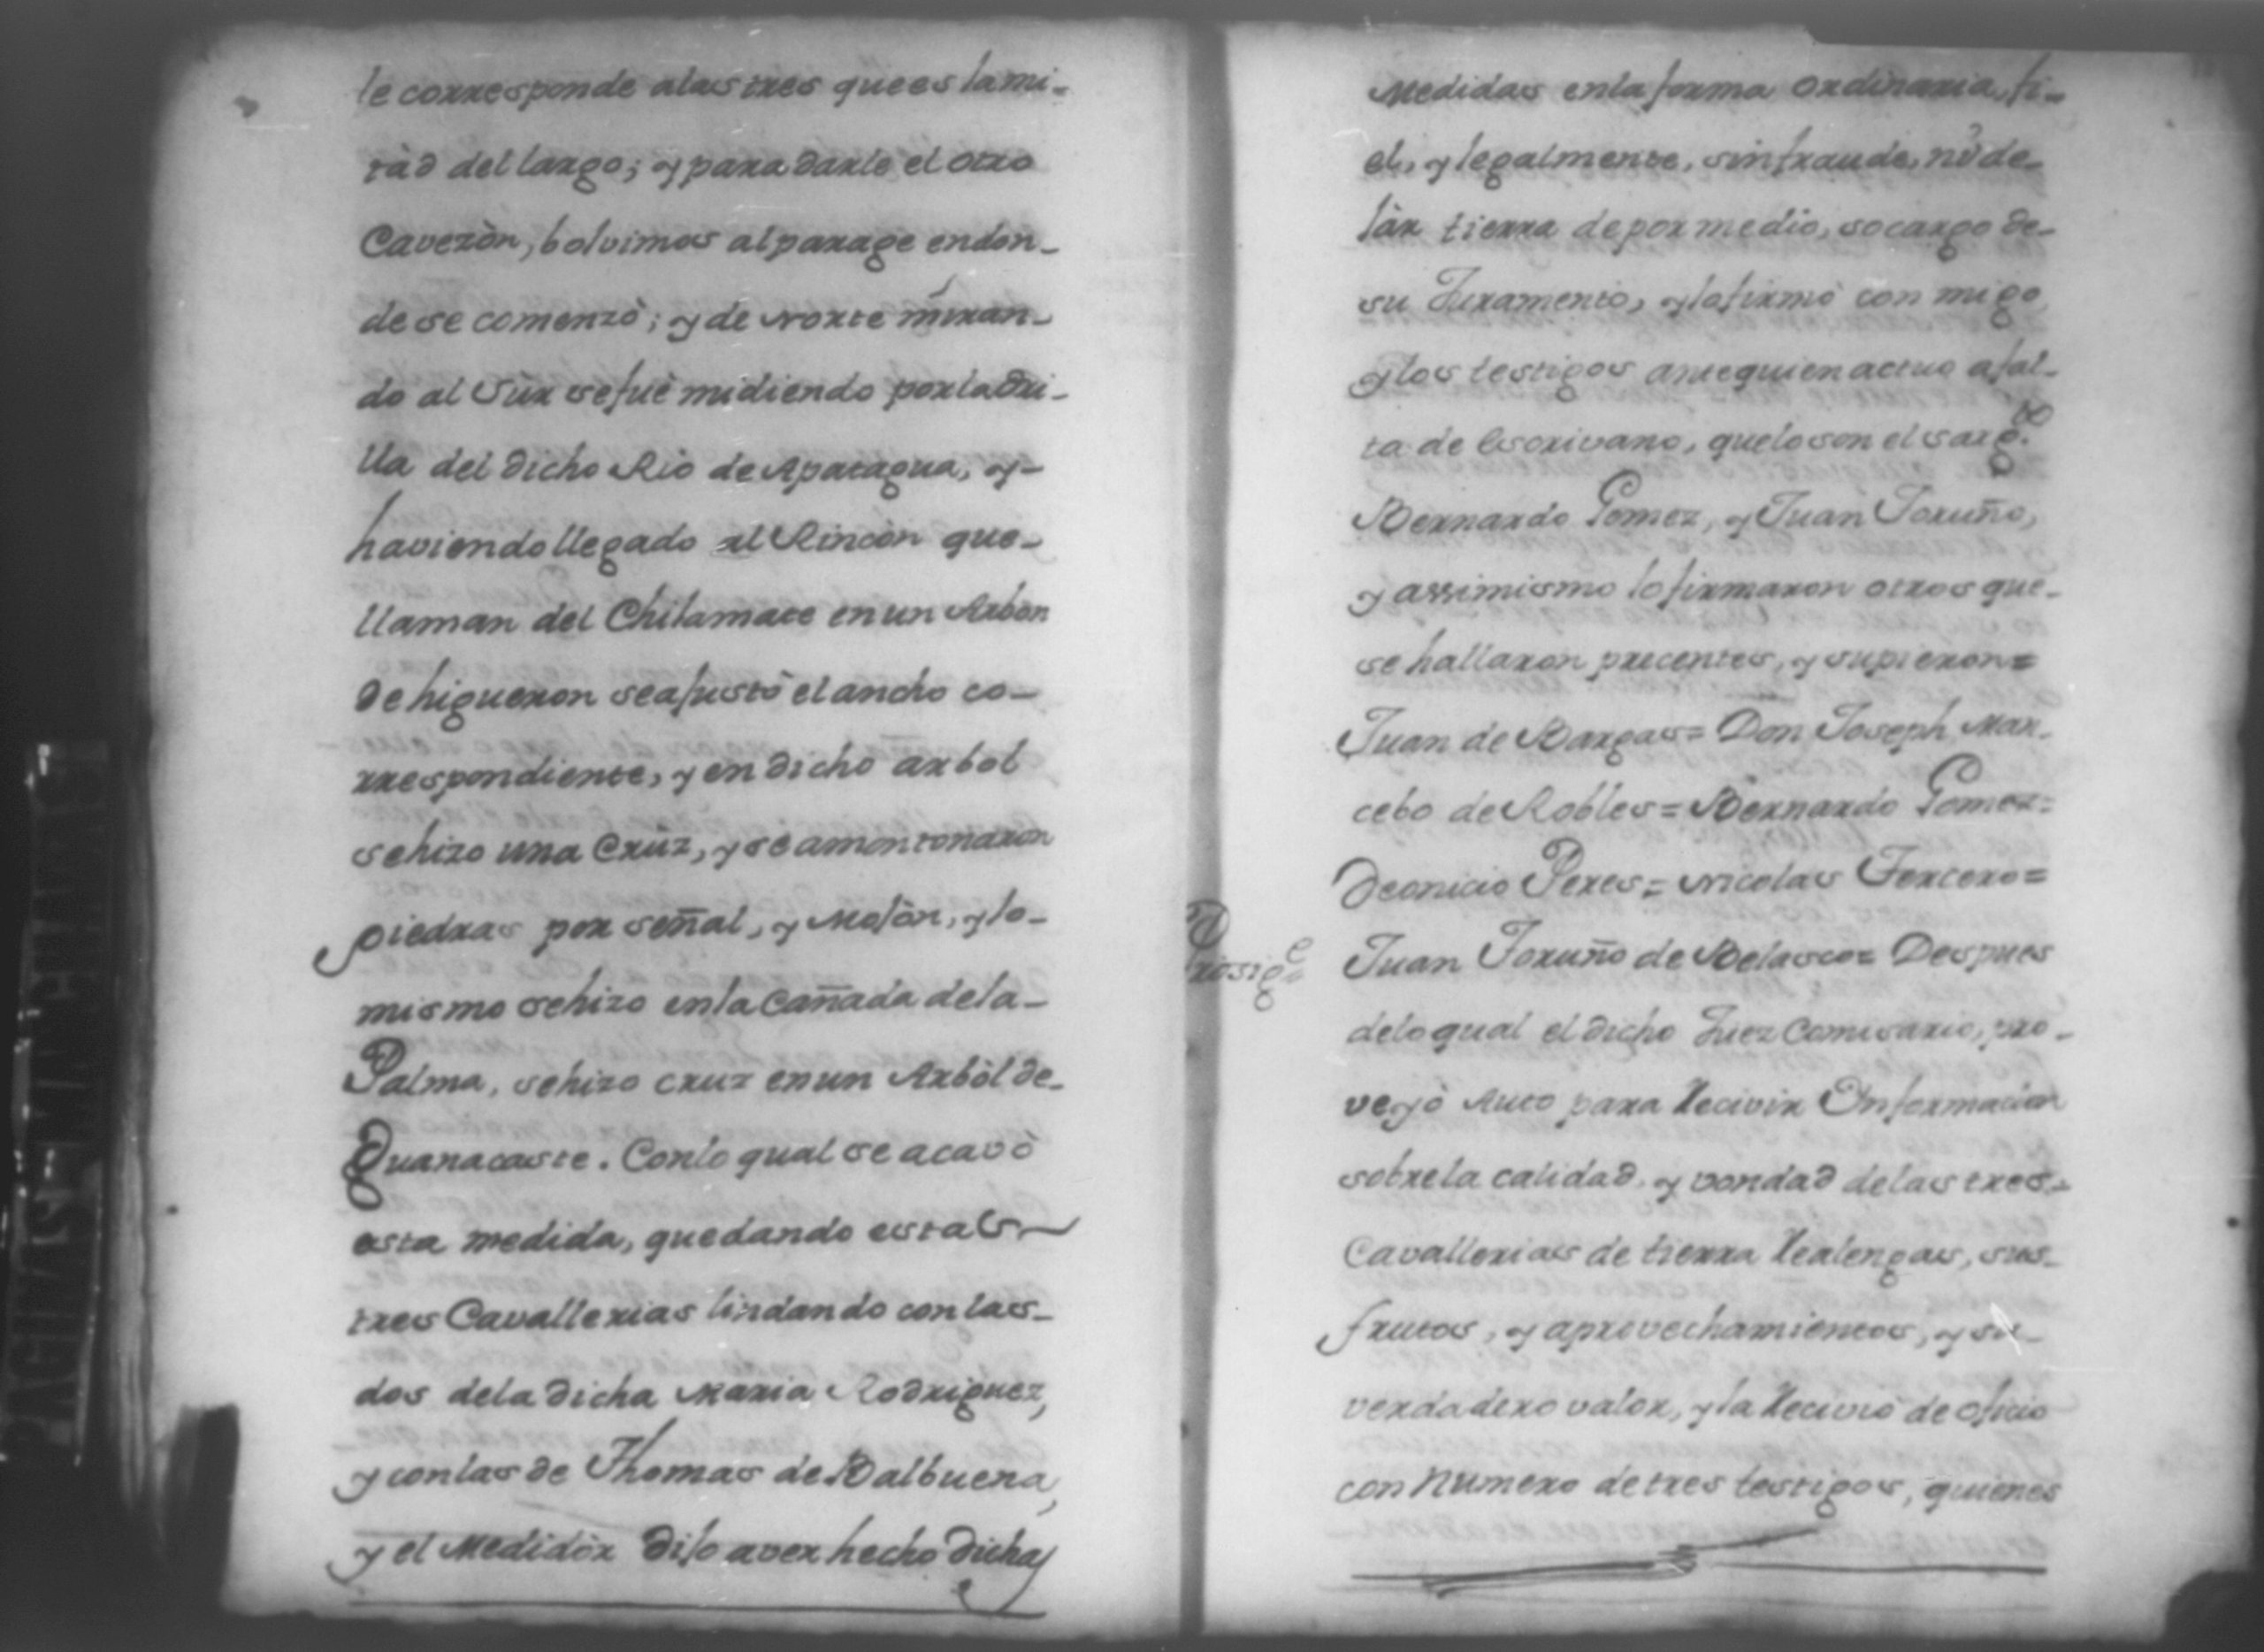 le corresponde a las tres que es la mi-
tàd del largo; y para darle el otro
Cavezòn, bolvimos al parage en don-
de se comenzò; y de norte miran-
do al Sùr se fuè midiendo por la Ori-
lla del dicho Rio de Apatagua, y-
haviendo llegado al Rincòn que-
llaman del Chilamate en un Arbon
de higueron se ajustò el ancho co-
rrespondiente, y en dicho arbol
se hizo una Crùz, y se amontonaron
piedras por señal, y Mojòn, y lo-
mismo se hizo en la Cañada de la-
Palma, se hizo cruz en un Arbòl de-
Guanacaste. Con lo qual se acavò
esta medida, quedando estas
tres Cavallerias lindando con las-
dos de la dicha Maria Rodriguez,
y con las de Thomas de Balbuena,
y el Medidòr dijo aver hecho dichas
Medidas en la forma ordinaria, fi-
el, y legalmente, sin fraude, nò de-
jàr tierra de por medio, so cargo de-
su Juramento, y lo firmò con migo
y los testigos ante quien actuo a fal-
ta de Escrivano, que lo son el sarg.to
Bernardo Gomez, y Juan Toruño,
y assimismo lo firmaron otros que-
se hallaron precentes, y supieron=
Juan de Bargas= Don Joseph Man-
cebo de Robles= Bernardo Gomez=
Deonicio Peres= Nicolas Tercero=
Prosig.e=
Juan Toruño de Belasco= Despues
de lo qual el dicho Juez Comisario, pro-
veyò Auto para Recivir Informacion
sobre la calidad, y vondad de las tres-
Cavallerias de tierra Realengas, sus-
frutos, y aprovechamientos, y su-
verdadero valor, y la Reciviò de oficio
con Numero de tres testigos, quienes